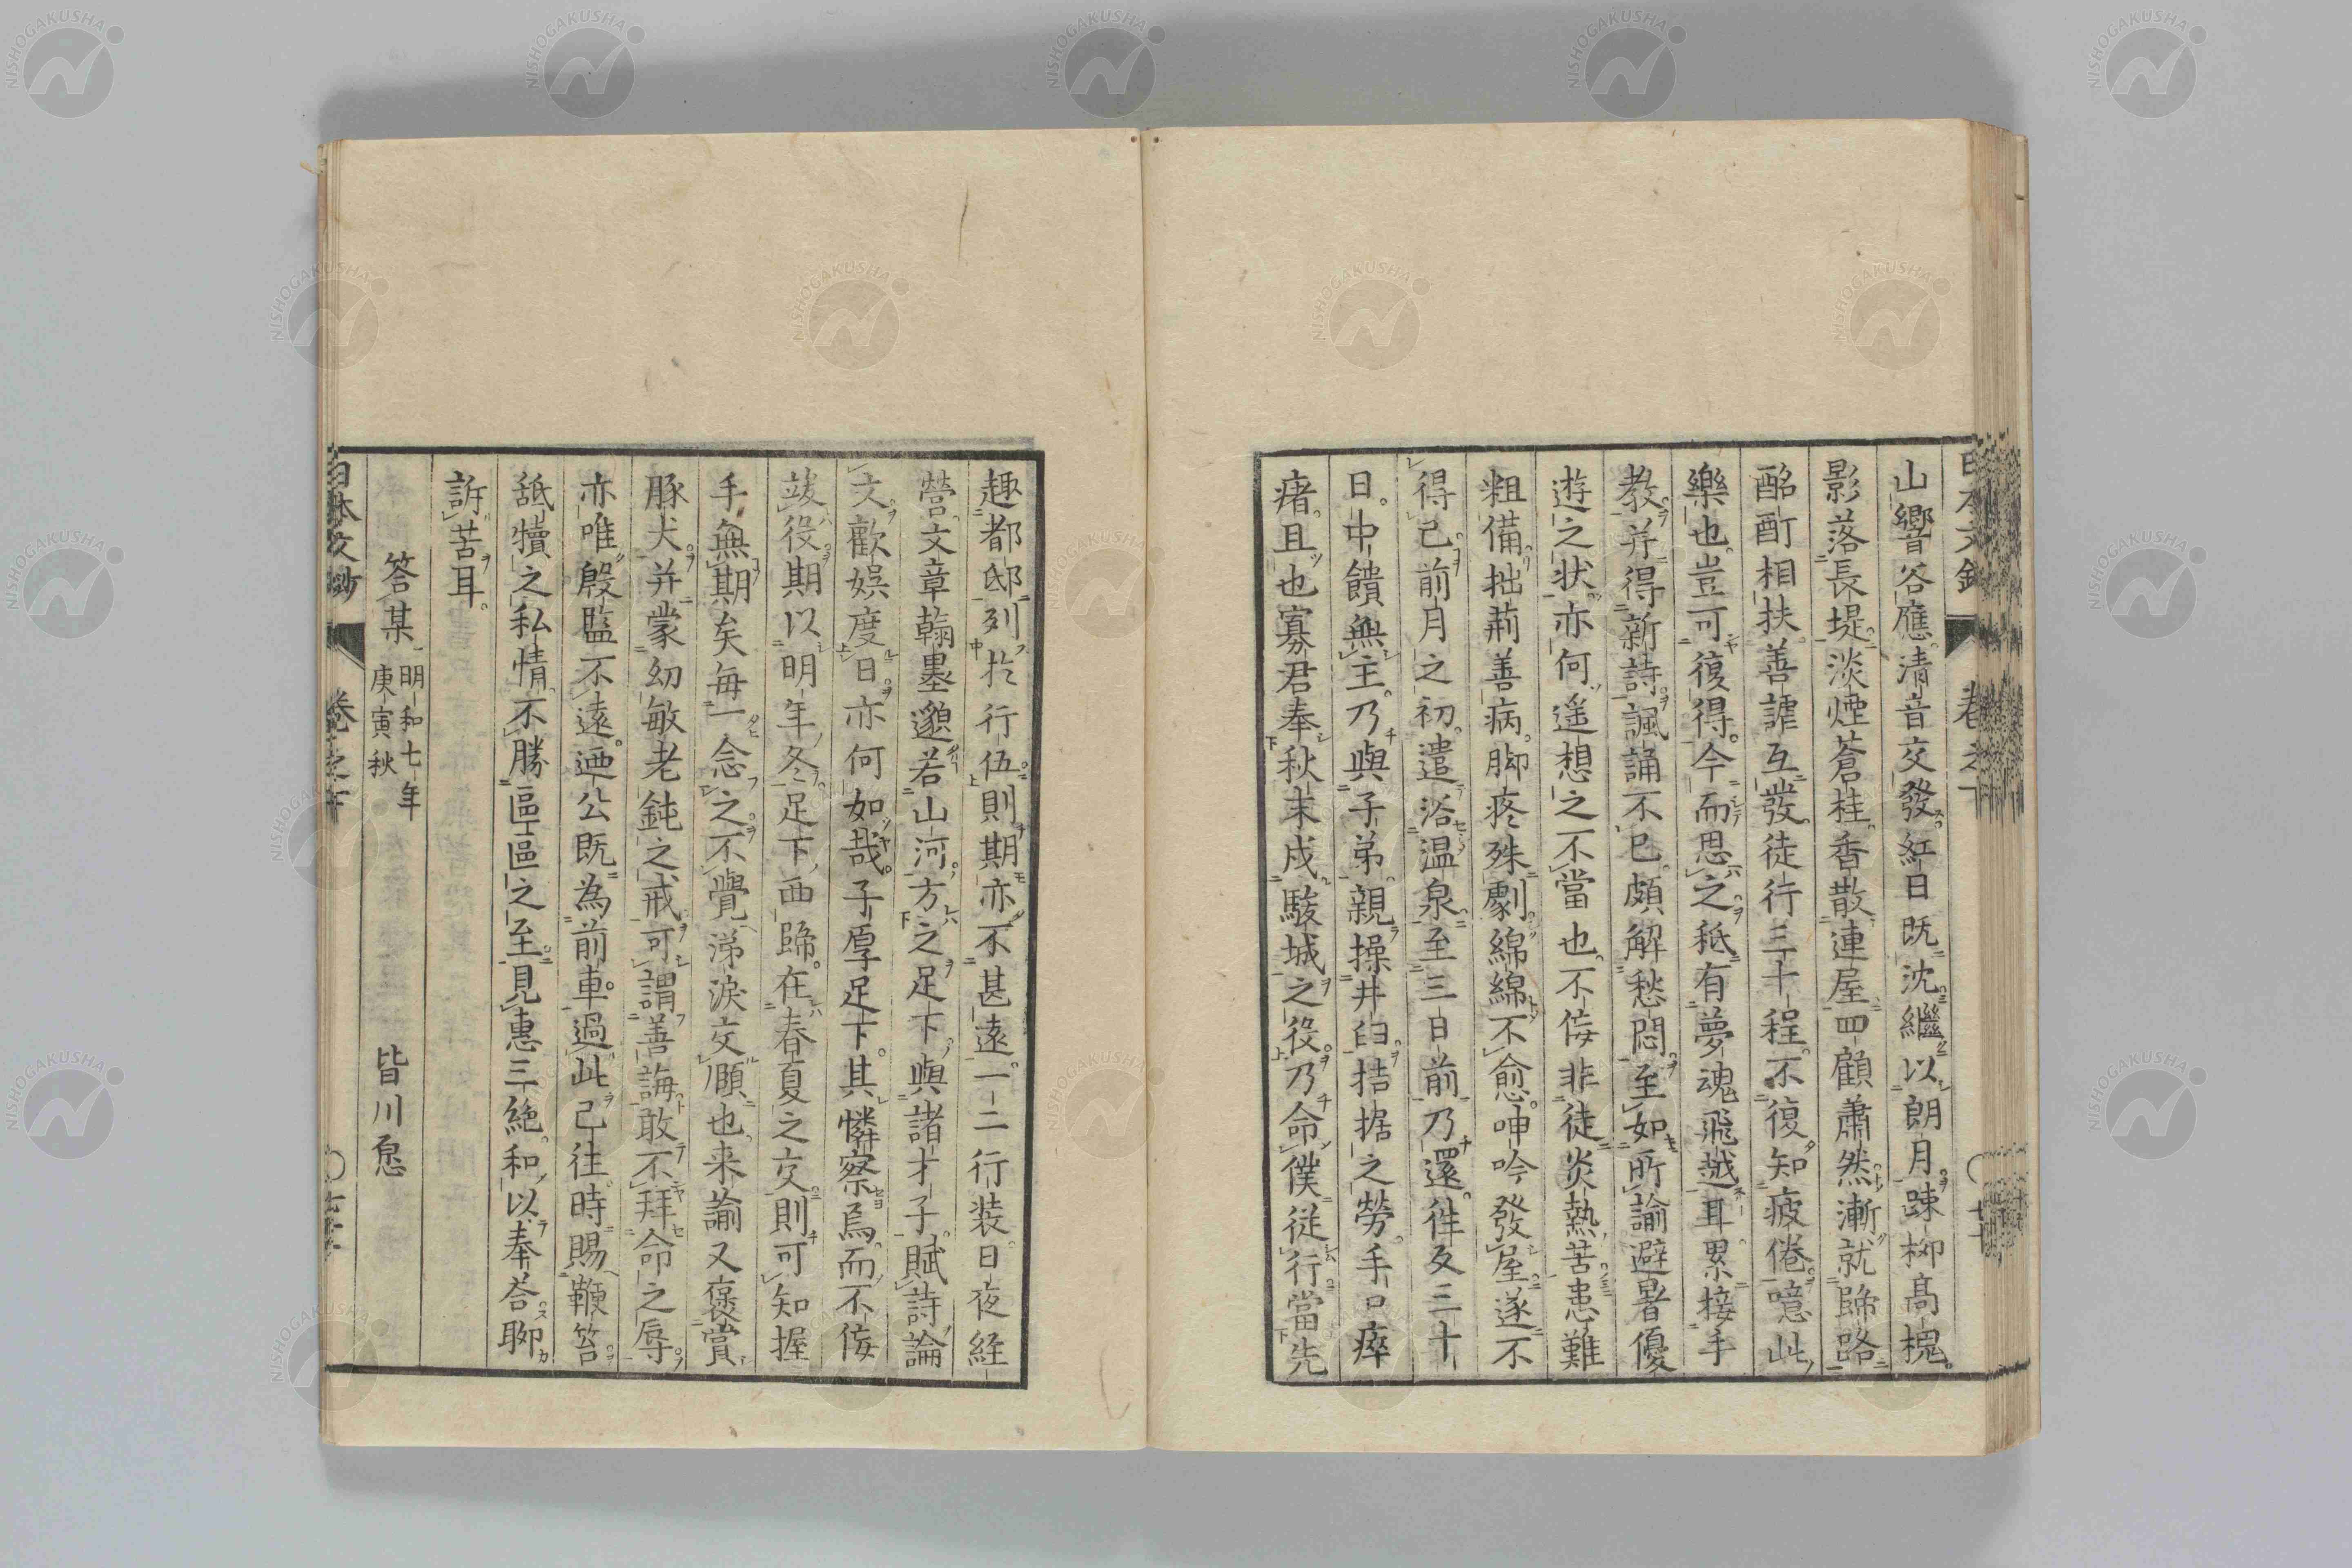 山響谷應清音交發紅日既沈繼以朗月踈柳高槐
影落長堤淡煙蒼桂香散連屋四顧蕭然漸就歸路
酩酊相扶善謔互發徒行三十程不復知疲倦噫此
樂也豈可復得今而思之秪有夢魂飛越耳累接手
教并得新詩諷誦不已頗解愁悶至如所諭避暑優
遊之状亦何遥想之不當也不侫非徒炎熱苦患難
粗備拙荊善病脚疼殊劇綿綿不愈呻吟發屋遂不
得已前月之初遣浴温泉至三日前乃還徃反三十
日中饋無主乃與子弟親操井臼拮据之勞手口瘁
瘏且也寡君奉秋末戍駿城之役乃命僕從行當先
趣都邸列於行伍則期亦不甚遠一二行装日夜経
營文章翰墨邈若山河方之足下與諸才子賦詩論
文歡娯度日亦何如哉子厚足下其憐察焉而不侫
竣役期以明年冬足下西歸在春夏之交則可知握
手無期矣毎一念之不覺涕淚交頤也来諭又褒賞
豚犬并蒙幼敏老鈍之戒可謂善誨敢不拜命之辱
亦唯殷監不遠廼公既為前車過此已往時賜鞭笞
舐犢之私情不勝區區之至見惠三絶和以奉荅聊
訴苦耳
答某 明和七年庚寅秋 皆川愿
日本文鈔 卷之下